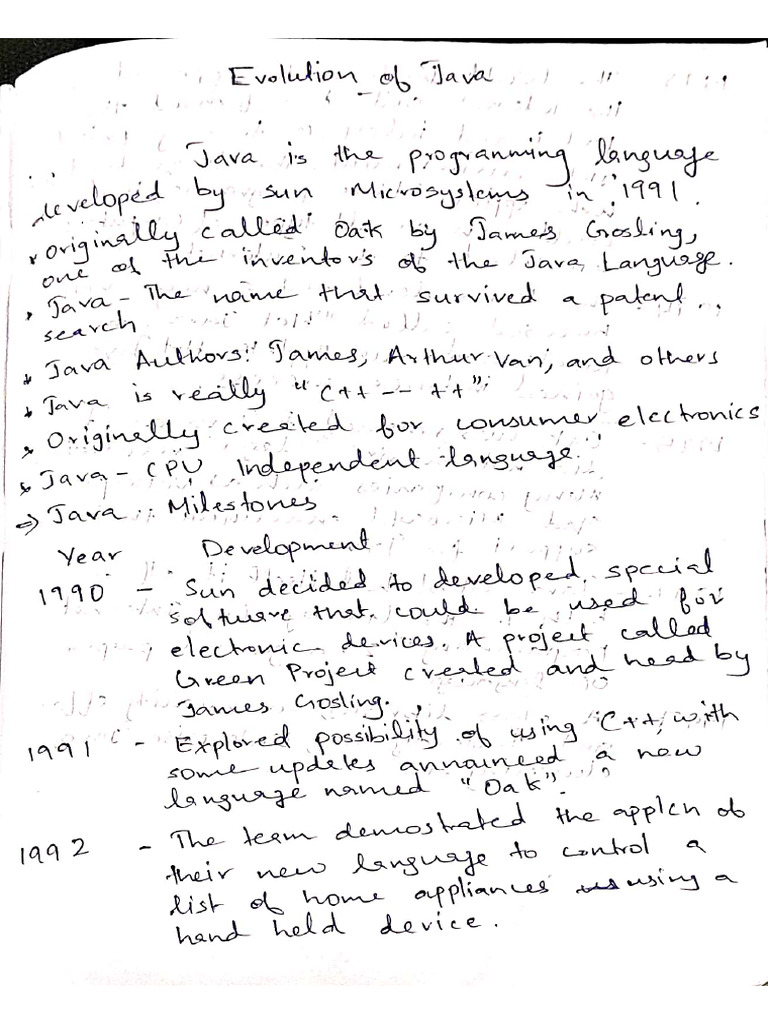 Evolution of Java
Java is the programming language
developed by sun Microsystems in 1991.
* Originally called Oak by James Gosling,
one of the inventors of the Java Language.
* Java - The name that survived a patent
search
* Java Authors: James, Arthur Van, and others
* Java is really "C++ -- ++"
* Originally created for consumer electronics
* Java - CPU Independent language.
⇒ Java Milestones
Year Development
1990 - Sun decided to developed special
software that could be used for
electronic devices. A project called
Green Project created and head by
James Gosling.
1991 - Explored possibility of using C++, with
some updates announced a new
language named "Oak".
1992 - The team demostrated the applcn of
their new language to control a
list of home appliances using a
hand held device.